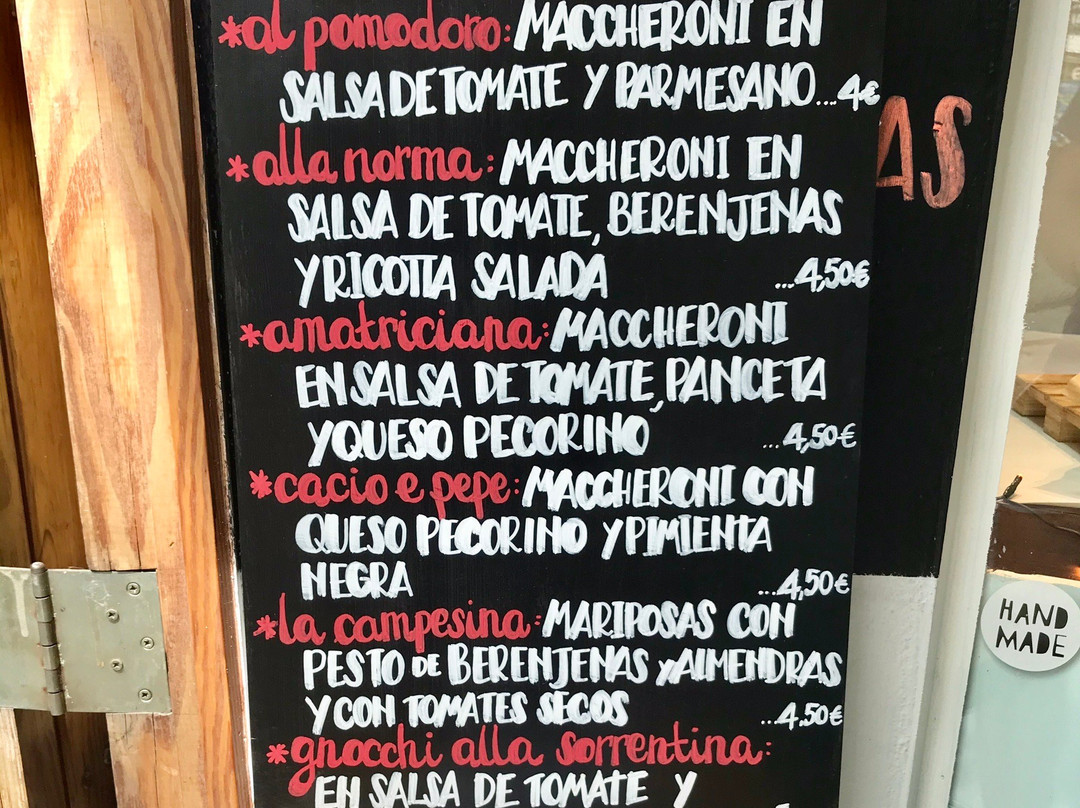 *al pomodoro: MACCHERONI EN
SALSA DE TOMATE Y PARMESANO...4€
*alla norma: MACCHERONI EN
SALSA DE TOMATE, BERENJENAS
Y RICOTTA SALADA ...4,50€
*amatriciana: MACCHERONI
EN SALSA DE TOMATE, PANCETA
Y QUESO PECORINO ...4,50€
*cacio e pepe: MACCHERONI CON
QUESO PECORINO Y PIMIENTA
NEGRA ...4,50€
*la campesina: MARIPOSAS CON
PESTO DE BERENJENAS Y ALMENDRAS
Y CON TOMATES SECOS ...4.50€
*gnocchi alla sorrentina:
EN SALSA DE TOMATE Y
HAND
MADE